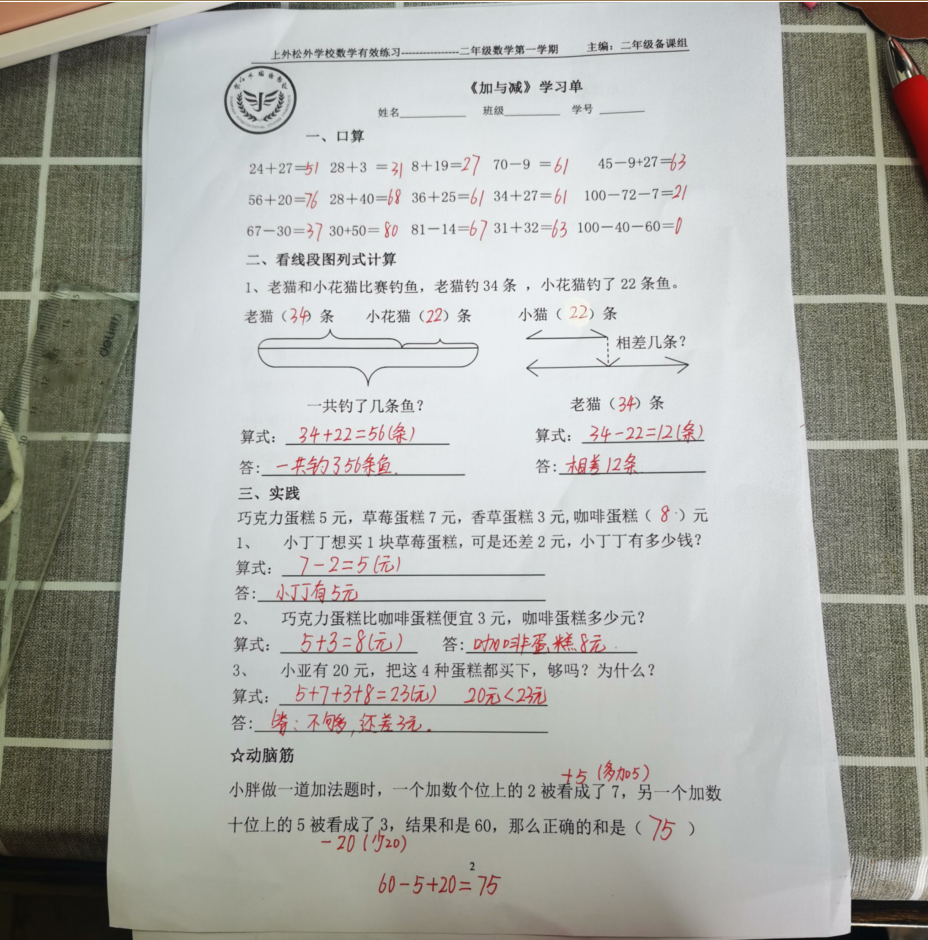 上外松外学校数学有效练习----------------二年级数学第一学期 主编：二年级备课组
《加与减》学习单
姓名__________ 班级________ 学号________
一、口算
24＋27＝51 28＋3 ＝31 8＋19＝27 70－9 ＝61 45－9+27＝63
56＋20＝76 28＋40＝68 36＋25＝61 34＋27＝61 100－72－7＝21
67－30＝37 30+50＝80 81－14＝67 31＋32＝63 100－40－60＝0
二、看线段图列式计算
1、老猫和小花猫比赛钓鱼，老猫钓34条 ，小花猫钓了22条鱼。
老猫（34）条 小花猫（22）条 小猫（ 22）条
相差几条？
一共钓了几条鱼？ 老猫（34）条
算式： 34+22=56(条) 算式： 34-22=12(条)
答： 一共钓了56条鱼. 答： 相差12条
三、实践
巧克力蛋糕5元，草莓蛋糕7元，香草蛋糕3元,咖啡蛋糕（ 8 ）元
1、 小丁丁想买1块草莓蛋糕，可是还差2元，小丁丁有多少钱？
算式： 7-2=5(元)
答： 小丁丁有5元
2、 巧克力蛋糕比咖啡蛋糕便宜3元，咖啡蛋糕多少元？
算式： 5+3=8(元) 答： 咖啡蛋糕8元.
3、 小亚有20元，把这4种蛋糕都买下，够吗？为什么？
算式： 5+7+3+8=23(元) 20元<23元
答： 答：不够,还差3元.
☆动脑筋
+5 (多加5)
小胖做一道加法题时，一个加数个位上的2被看成了7，另一个加数
十位上的5被看成了3，结果和是60，那么正确的和是（ 75 ）
-20(少20)
2
60-5+20=75